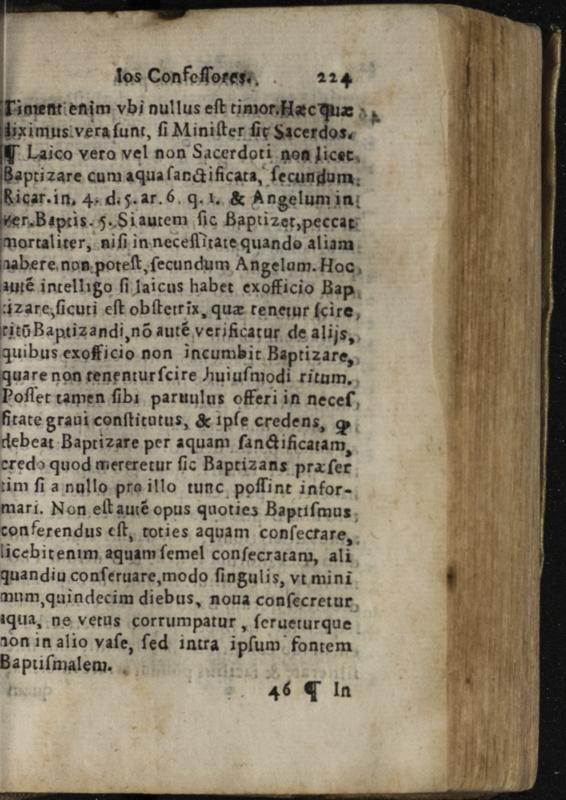 los Confeſſores. 224
Timent enim vbi nullus eſt timor. Hæc quæ
diximus vera ſunt, ſi Miniſter ſic Sacerdos.
¶ Laico vero vel non Sacerdoti non licet
Baptizare cum aqua ſanctificata, ſecundum
Ricar. in. 4. d. 5. ar. 6. q. 1. & Angelum in
ver. Baptis. 5. Si autem ſic Baptizet, peccat
mortaliter, niſi in neceſſitate quando aliam
habere non poteſt, ſecundum Angelum. Hoc
autē intelligo ſi laicus habet exofficio Bap
tizare, ſicuti eſt obſtetrix, quæ tenetur ſcire
ritū Baptizandi, nō autē verificatur de alijs,
quibus exofficio non incumbit Baptizare,
quare non tenentur ſcire huiuſmodi ritum.
Poſſet tamen ſibi paruulus offeri in neceſ
ſitate graui conſtitutus, & ipſe credens, ꝙ
debeat Baptizare per aquam ſanctificatam,
credo quod mereretur ſic Baptizans præſer
tim ſi a nullo pro illo tunc poſſint infor-
mari. Non eſt autē opus quoties Baptiſmus
conferendus eſt, toties aquam conſecrare,
licebit enim aquam ſemel conſecratam, ali
quandiu conſeruare, modo ſingulis, vt mini
mum, quindecim diebus, noua conſecretur
aqua, ne vetus corrumpatur, ſerueturque
non in alio vaſe, ſed intra ipſum fontem
Baptiſmalem.
46 ¶ In